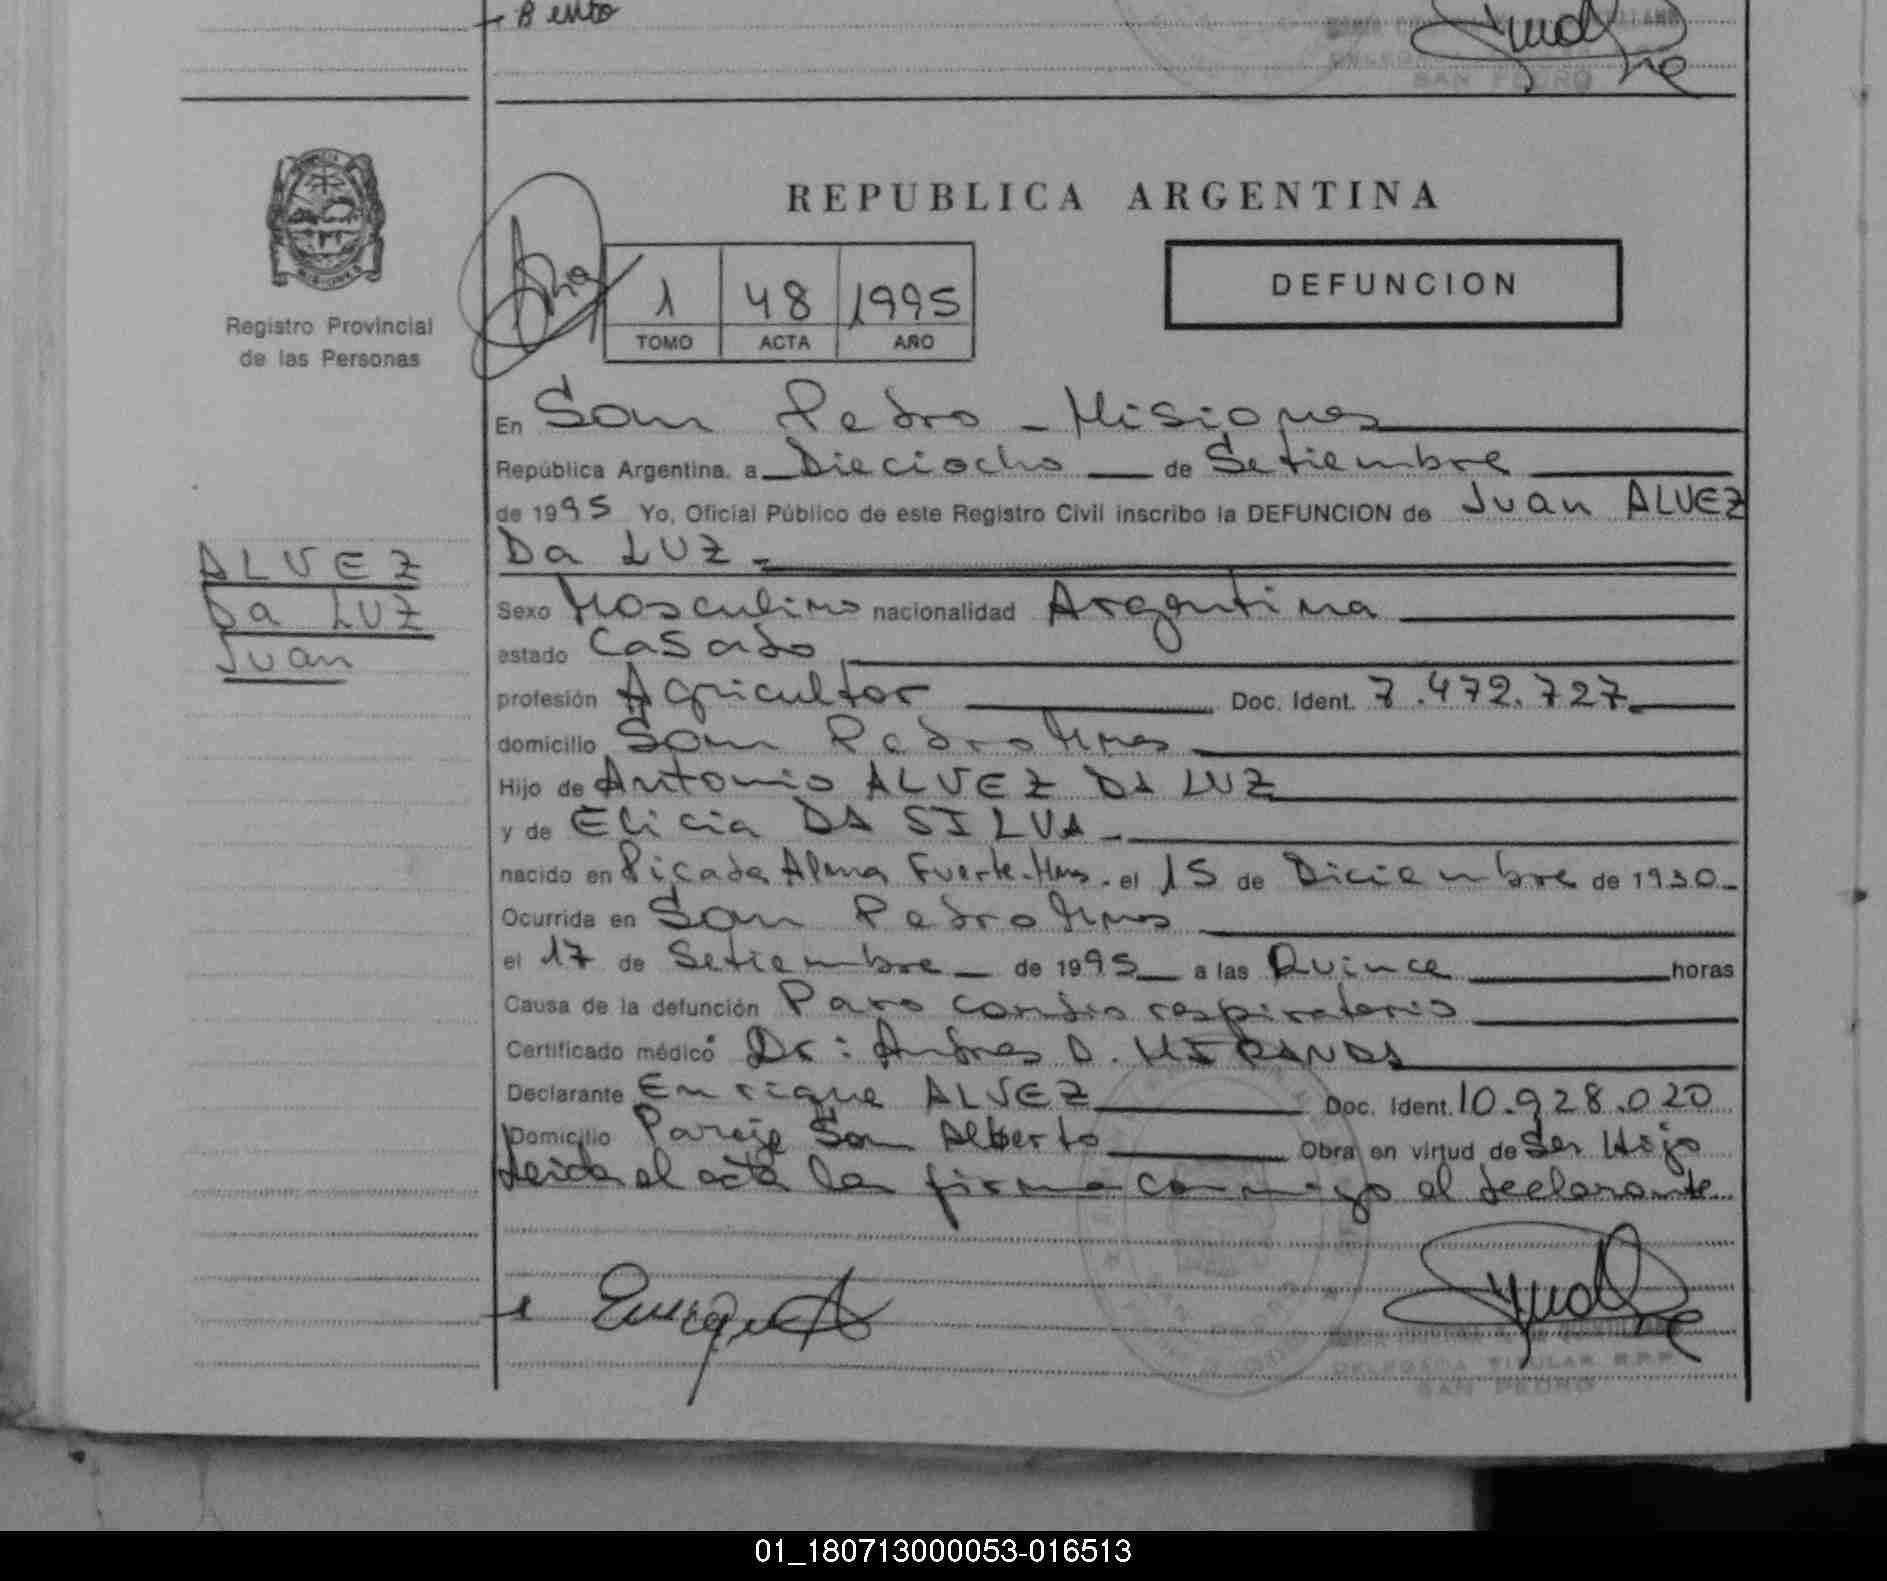 Bento
SAN PEDRO
REPUBLICA ARGENTINA
Registro Provincial
de las Personas
1 48 1995
TOMO ACTA AÑO
DEFUNCION
ALVEZ
Da LUZ
Juan
En San Pedro - Misiones
República Argentina, a Dieciocho de Setiembre
de 1995 Yo, Oficial Público de este Registro Civil inscribo la DEFUNCION de Juan ALVEZ
Da LUZ.-
Sexo Masculino nacionalidad Argentina
estado Casado
profesión Agricultor Doc. Ident. 7.472.727.
domicilio San Pedro Mnes
Hijo de Antonio ALVEZ DA LUZ
y de Elicia DA SILVA.-
nacido en Picada Alma Fuerte-Mnes. el 15 de Diciembre de 1930-
Ocurrida en San Pedro Mnes
el 17 de Setiembre de 1995 a las Quince horas
Causa de la defunción Paro cardio respiratorio
Certificado médico Dr: Andres D. MIRANDA
Declarante Enrique ALVEZ Doc. Ident. 10.928.020
Domicilio Paraje San Alberto Obra en virtud de Ser Hijo
Leida el acta la firma conmigo el declarante
Enrique A
DELEGADA TITULAR R.P.P.
SAN PEDRO
01_180713000053-016513